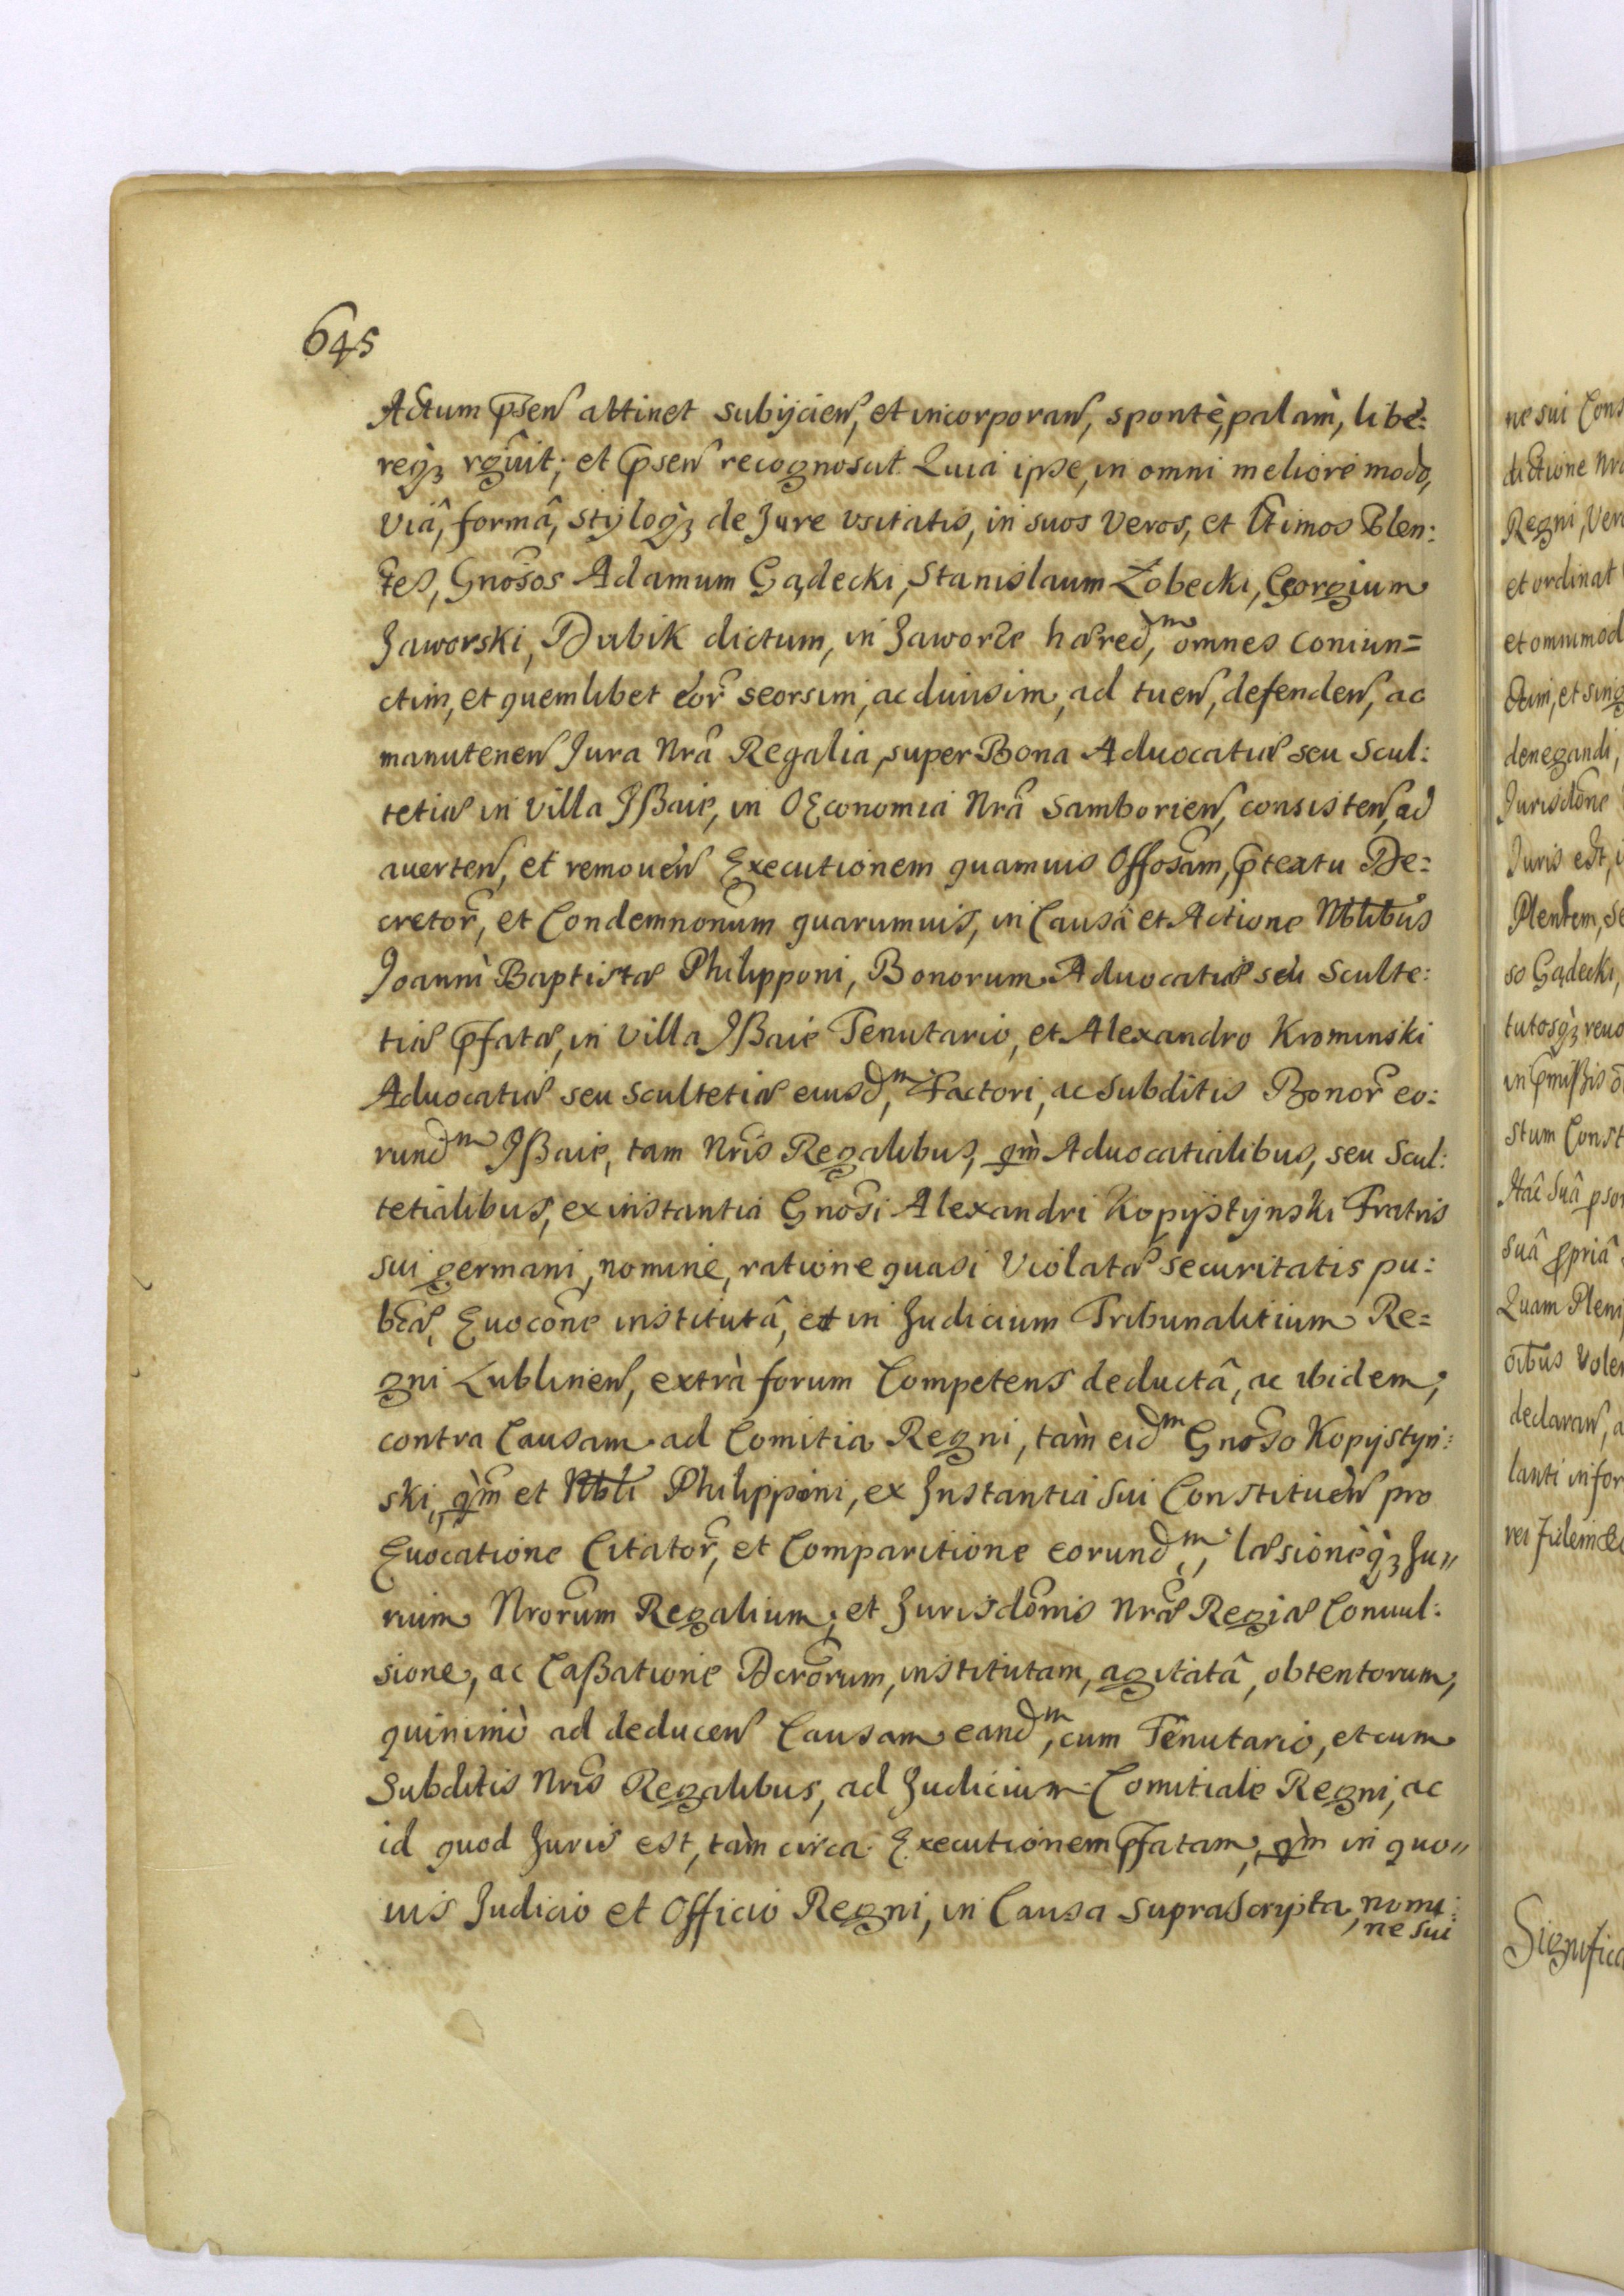 645
Actum p̃sen attinet subijcien, et incorporan, spontè, palàm, libe:
reqȝ rg̃uit; et p̃sen recognoscit. Quia ipse, in omni meliorè modo,
viâ, formâ, styloqȝ de Jure vsitatis, in suos veros, et lt̃imos Plen:
tes, Gnõsos Adamum Gądecki, Stanislaum Zobecki, Georgium
Jaworski, Dubik dictum, in Jaworze hæred, omnes coniun=
ctim, et quemlibet eor̃ seorsim, ac diuisim, ad tuen, defenden, ac
manutenen Jura Nrã Regalia, super Bona Aduocatiæ seu Scul:
tetiæ in villa Jßaie, in OEconomia Nrã Samborien, consisten, ad
auerten, et remouen Executionem quamuis Offosam, p̃textu De=
cretor̃, et Condemnonum quarumuis, in Causâ et Actione Nblibus
Joanni Baptistæ Philipponi, Bonorum Aduocatiæ seu Sculte:
tiæ p̃fatæ, in villa Jßaie Tenutario, et Alexandro Krominski
Aduocatiæ seu Scultetiæ eiusdm, Factori, ac Subditis Bonor̃ eo:
rundm Jßaie, tam Nrĩs Regalibus, qm̀ Aduocatialibus, seu Scul:
tetialibus, ex instantia Gnõsi Alexandri Kopijstijnski Fratris
sui germani, nomine, ratione quasi violatæ securitatis pu:
bcæ, Euocõne institutâ, et in Judicium Tribunalitium Re=
gni Lublinen, extrà forum Competens deductâ, ac ibidem,
contra Causam ad Comitia Regni, tàm eidm Gnõso Kopijstijn:
ski, qm̀ et Nbli Philipponi, ex Instantia Sui Constituen pro
Euocatione Citator̃, et Comparitione eorundm, læsionèqȝ Ju"
rium Nrorum Regalium, et Jurisdõnis Nræ Regiæ Conuul:
sione, ac Caßatione Dcrorum, institutam, agitatâ, obtentorum,
quinimò ad deducen Causam eandm, cum Tenutario, et cum
Subditis Nrĩs Regalibus, ad Judicium Comitiale Regni, ac
id quod Juris est, tàm circa Executionem p̃fatam, qm̀ in quo"
uis Judicio et Officio Regni, in Causa suprascripta, nomi:
ne sui
ne sui Cons
dictione Nrã
Regni, Vero
et ordinat
et omnimod
ctim, et sing
denegandi,
Jurisdõne
Juris est, i
Plentem, se
so Gądecki,
tutosqȝ reuo
in p̃mißis
stum Const
Suâ p̃priâ
Quam Pleni
oĩbus Volen
declaran, a
lanti infor
rei fidem
Significa